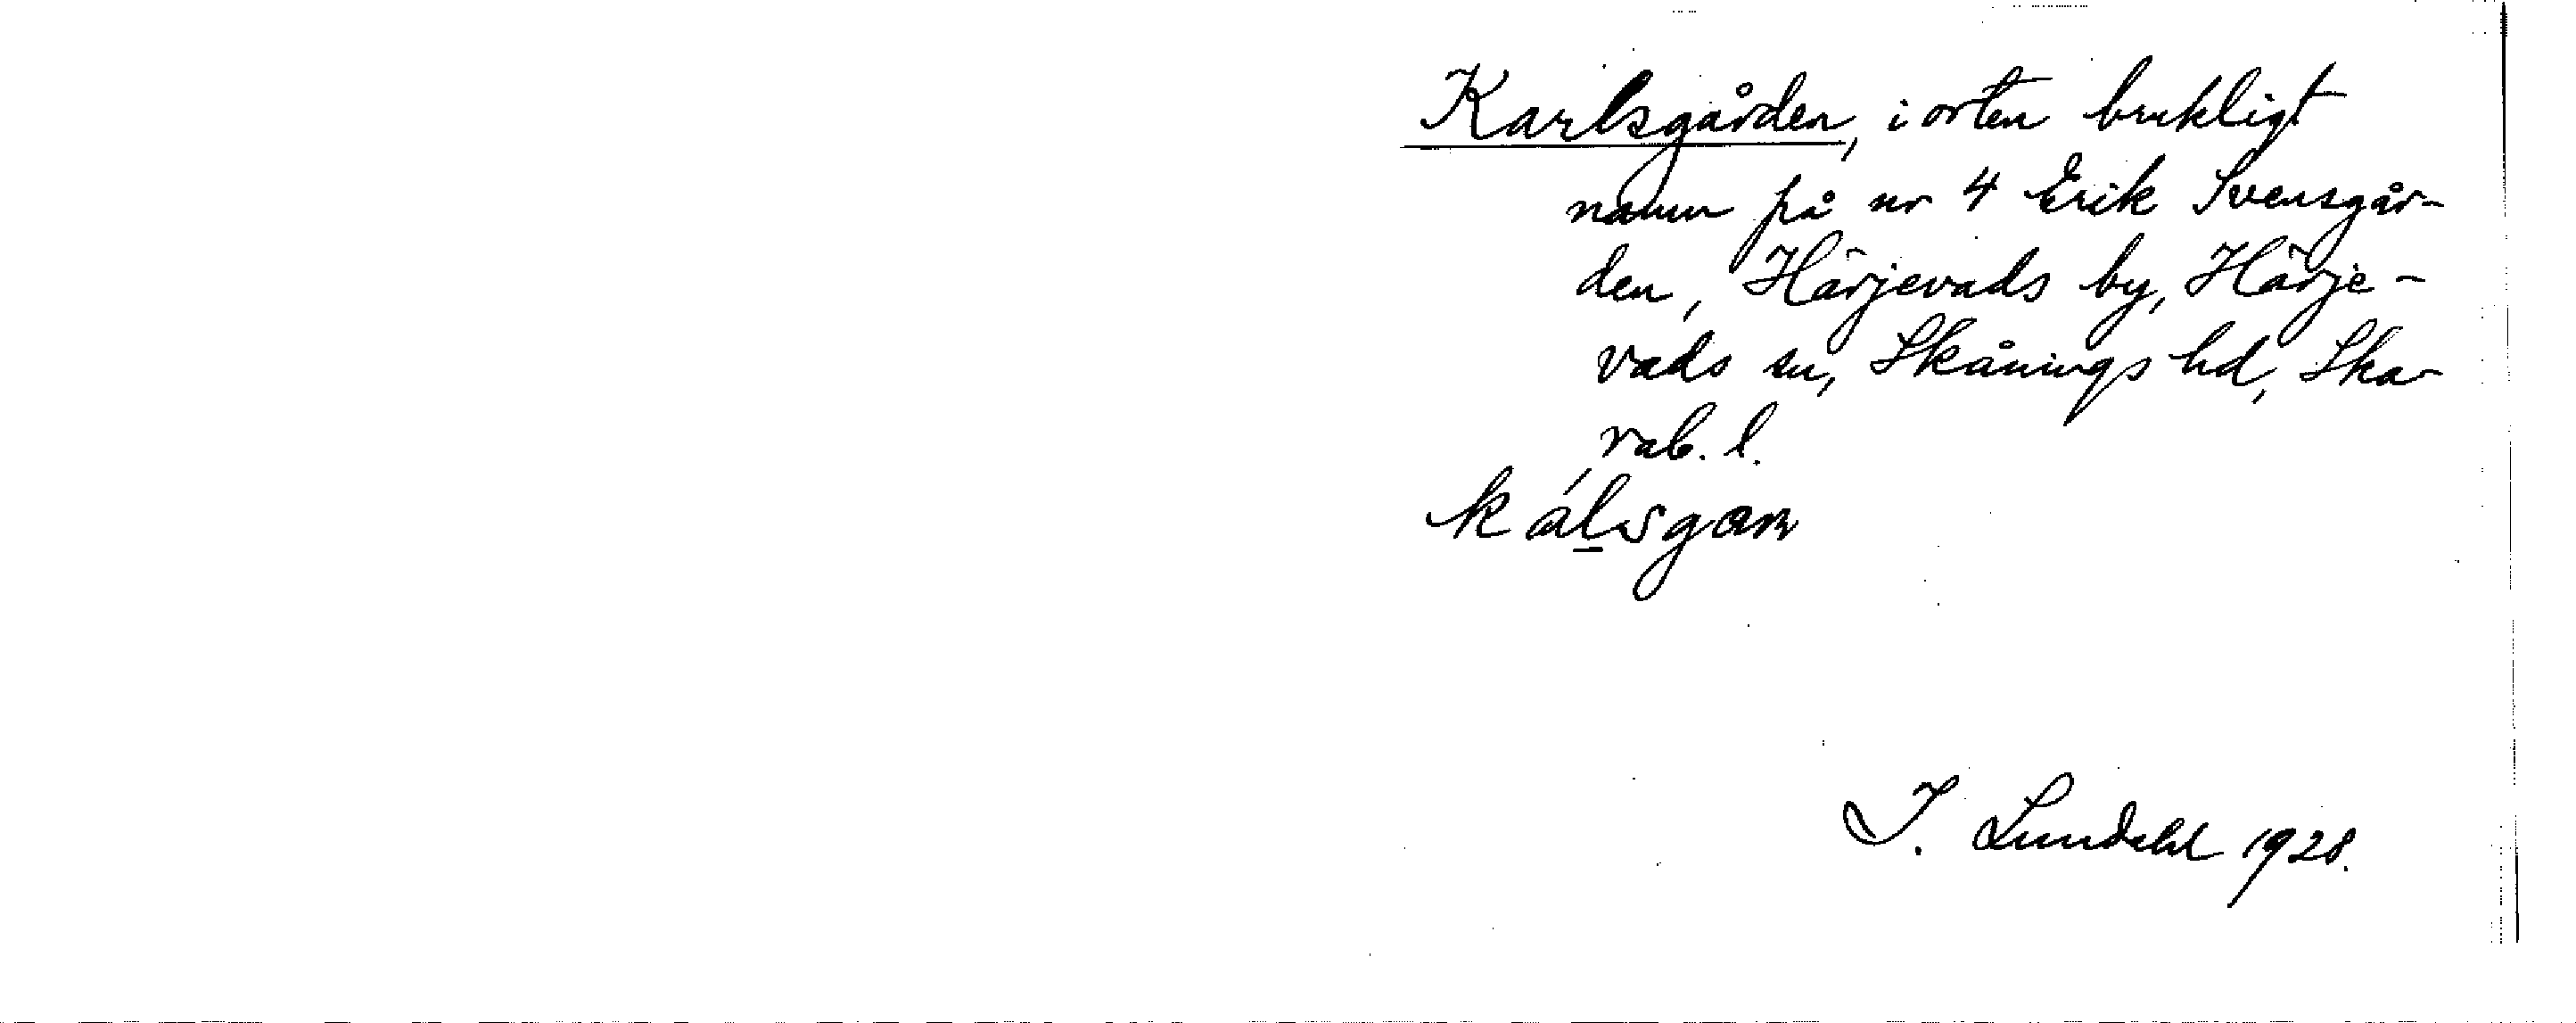 Karlsgården, i orten brukligt
namn på nr 4 Erik Svensgår-
den, Härjevads by, Härje-
vads sn, Skånings hd, Ska-
rab. l.
kálsgan
I. Lundahl 1928.